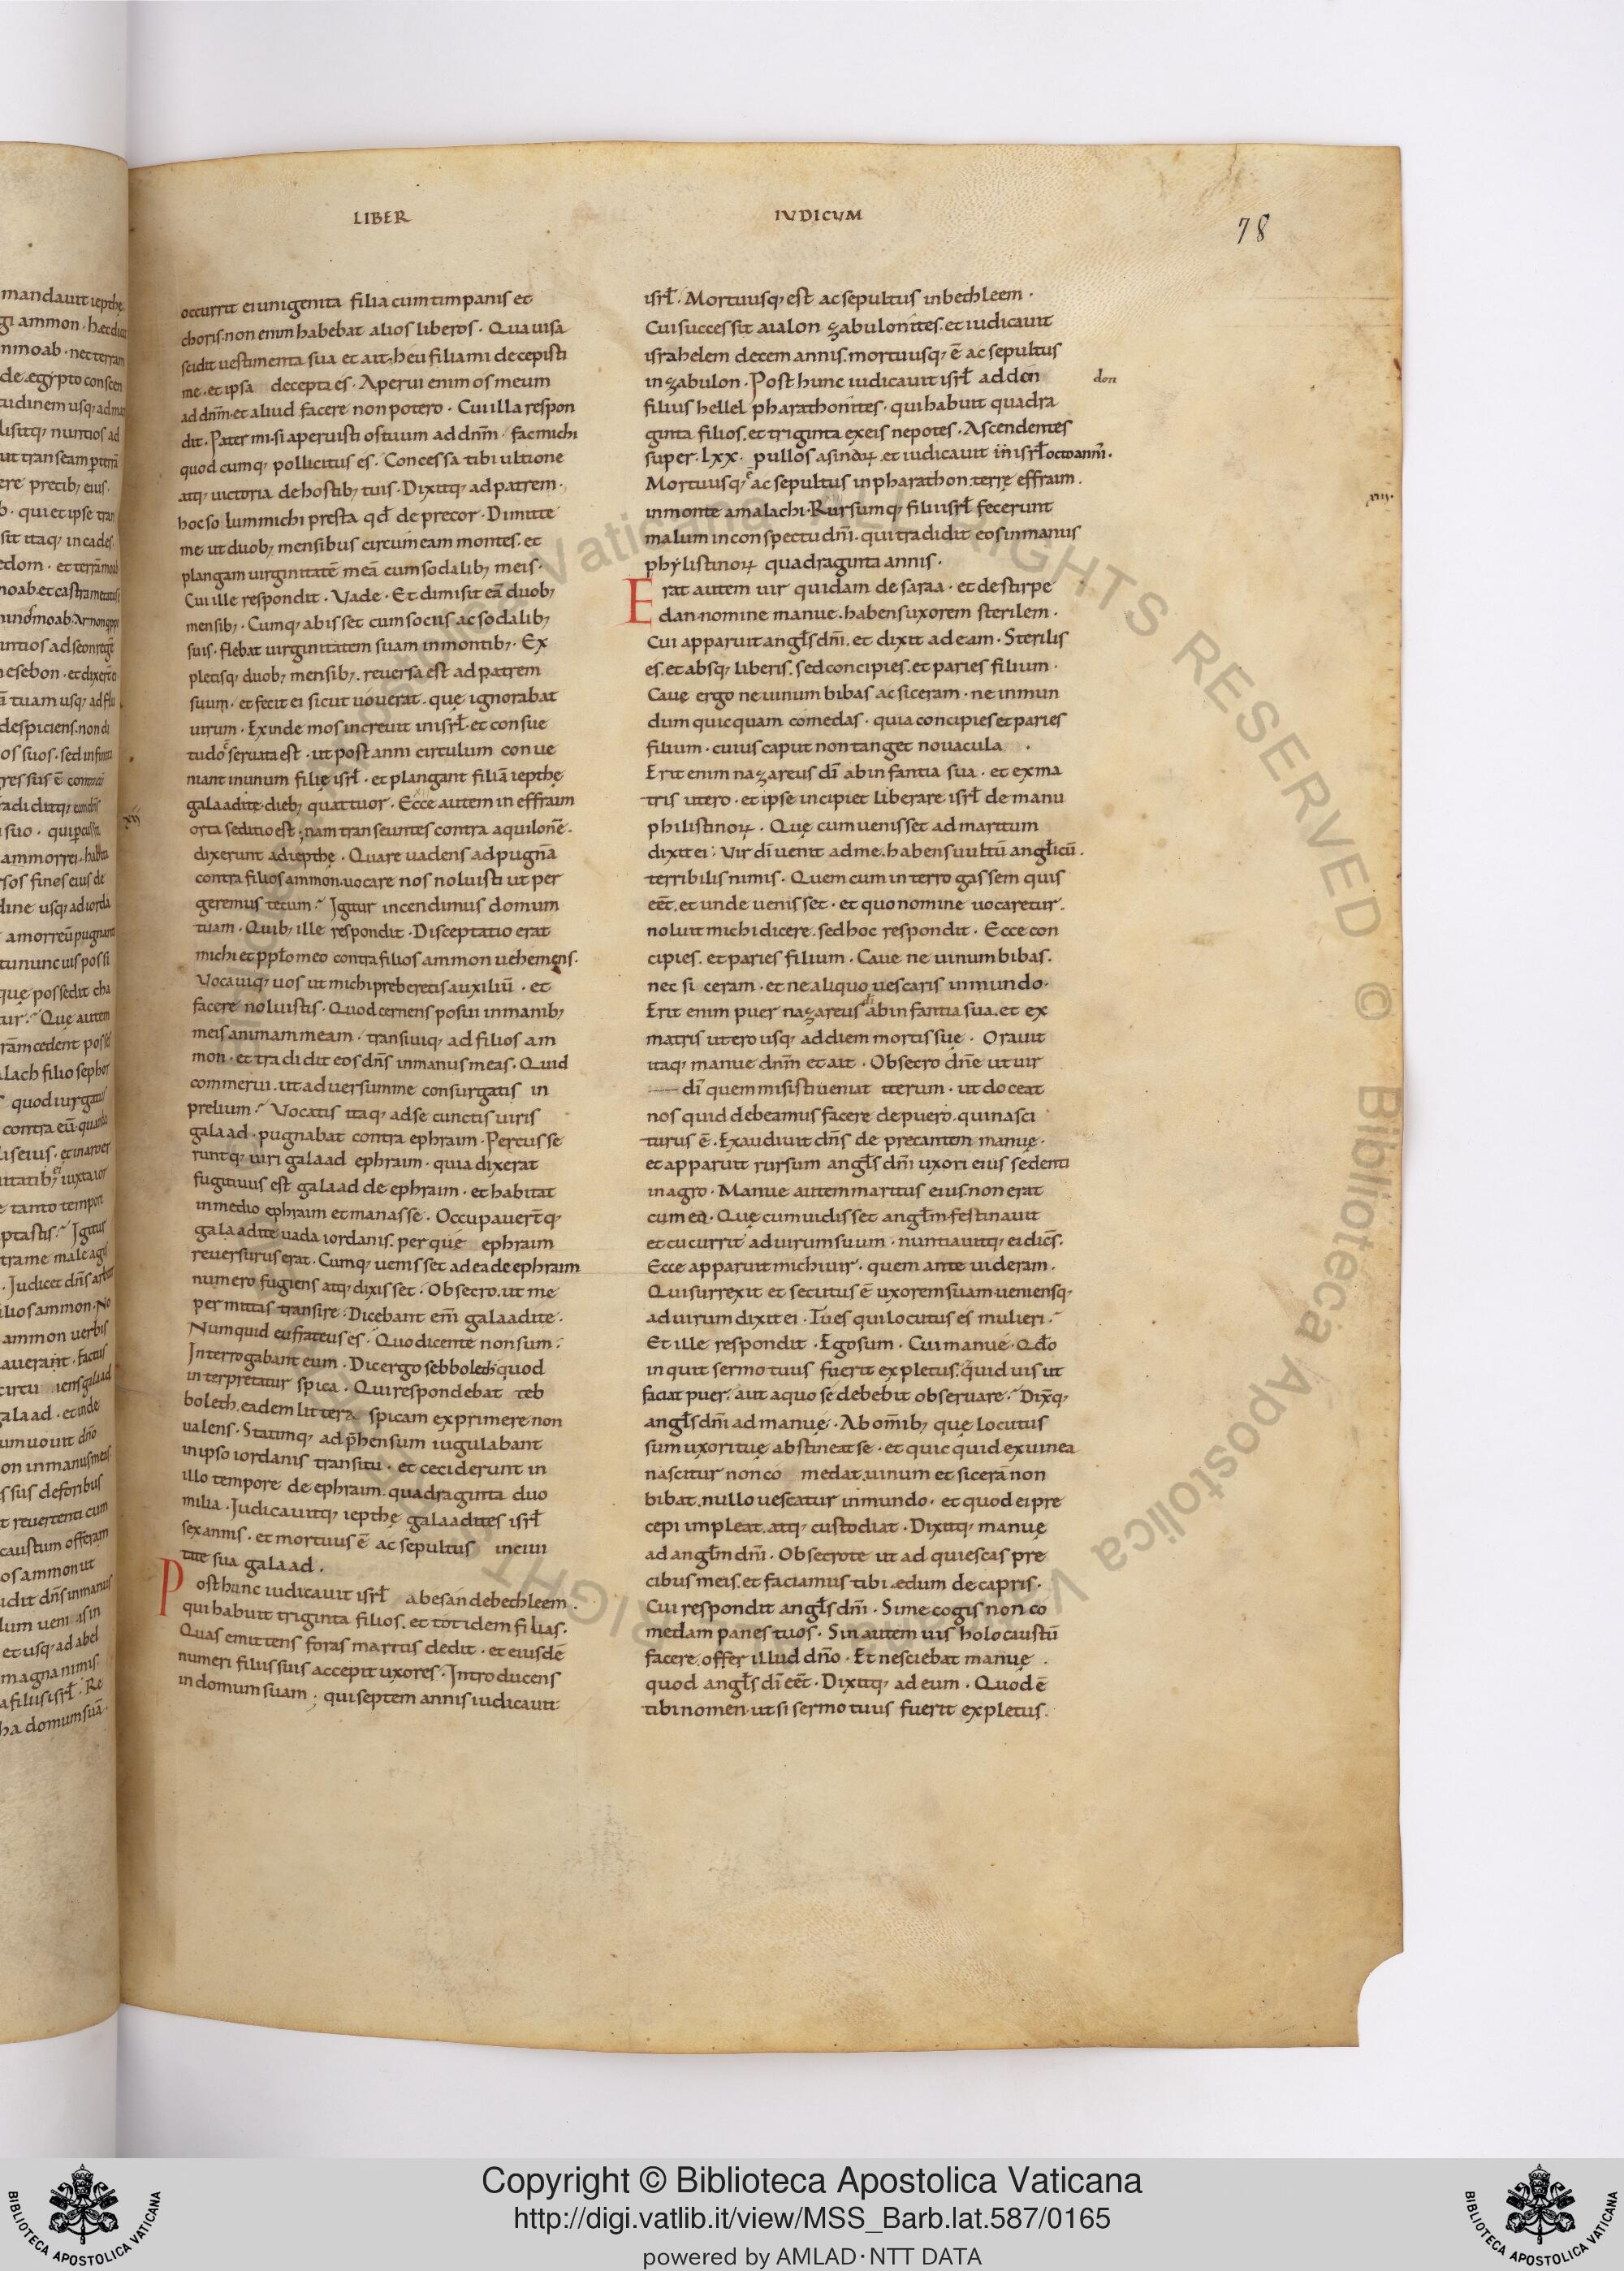 LIBER
IUDICUM
78
occurrit ei unigenita filia cum timpanis et
choris. non enim habebat alios liberos. Qua uisa
scidit uestimenta sua et ait. heu filia mi decepisti
me. et ipsa decepta es. Aperui enim os meum
ad dnm̄. et aliud facere non potero. Cui illa respon
dit. Pater mi. si aperuisti os tuum ad dnm̄. fac michi
quod cumq; pollicitus es. Concessa tibi ultione
atq; uictoria de hostib; tuis. Dixitq; ad patrem.
hoc solum michi presta qđ de precor. Dimitte
me ut duob; mensibus circumeam montes. et
plangam uirginitatē meā cum sodalib; meis.
Cui ille respondit. Vade. Et dimisit eā duob;
mensib;. Cumq; abisset cum sociis ac sodalib;
suis. flebat uirginitatem suam in montib;. Ex
pletisq; duob; mensib;. reuersa est ad patrem
suum. et fecit ei sicut uouerat. quę ignorabat
uirum. Exinde mos increuit in isrł. et consue
tudo seruata est. ut post anni circulum conue
niant in unum filię isrł. et plangant filiā iepthę
galaadite dieb; quattuor. Ecce autem in effraim
orta seditio est; nam transeuntes contra aquilonē.
dixerunt ad iepthę. Quare uadens ad pugnā
contra filios ammon. uocare nos noluisti ut per
geremus tecum? Igitur incendimus domum
tuam. Quib; ille respondit. Disceptatio erat
michi et ppło meo contra filios ammon uehemens.
Vocauiq; uos ut michi preberetis auxiliū. et
facere noluistis. Quod cernens posui in manib;
meis animam meam. transiuiq; ad filios am
mon. et tradidit eos dn̄s in manus meas. Quid
commerui. ut aduersum me consurgatis in
prelium? Vocatis itaq; ad se cunctis uiris
galaad. pugnabat contra ephraim. Percusse
runtq; uiri galaad ephraim. quia dixerat
fugitiuus est galaad de ephraim. et habitat
in medio ephraim et manasse. Occupauer̄tq;
galaadite uada iordanis. per que ephraim
reuersurus erat. Cumq; uenisset ad ea de ephraim
numero fugiens atq; dixisset. Obsecro. ut me
permittas transire. Dicebant em̄ galaadite.
Numquid eufrateus es. Quo dicente non sum.
Interrogabant eum. Dic ergo sebboleth quod
interpretatur spica. Qui respondebat teb
boleth. eadem littera spicam exprimere non
ualens. Statimq; adp̄hensum iugulabant
in ipso iordanis transitu. et ceciderunt in
illo tempore de ephraim. quadraginta duo
milia. Iudicauitq; iepthę galaadites isrł
sex annis. et mortuus ē ac sepultus in ciui
tate sua galaad.
Post hunc iudicauit isrł abesan de bethleem.
qui habuit triginta filios. et totidem filias.
Quas emittens foras maritis dedit. et eiusdē
numeri filiis suis accepit uxores. Introducens
in domum suam; qui septem annis iudicauit
isrł. Mortuusq; est ac sepultus in bethleem.
Cui successit aialon zabulonites. et iudicauit
israhelem decem annis. mortuusq; ē ac sepultus
in zabulon. Post hunc iudicauit isrł addon
don
filius hellel pharathonites. qui habuit quadra
ginta filios. et triginta ex eis nepotes. Ascendentes
super. lxx. pullos asinoꝝ. et iudicauit in isrł octo annis.
Mortuusq; ē ac sepultus in pharathon. terrę effraim.
in monte amalachi. Rursumq; filii isrł fecerunt
malum in conspectu dnī. qui tradidit eos in manus
phylistinoꝝ quadraginta annis.
Erat autem uir quidam de saraa. et de stirpe
dan. nomine manue. habens uxorem sterilem.
Cui apparuit angłs dnī. et dixit ad eam. Sterilis
es. et absq; liberis. sed concipies. et paries filium.
Caue ergo ne uinum bibas ac siceram. ne inmun
dum quicquam comedas. quia concipies et paries
filium. cuius caput non tanget nouacula.
Erit enim nazareus dī ab infantia sua. et ex ma
tris utero. et ipse incipiet liberare isrł de manu
philistinoꝝ. Quę cum uenisset ad maritum
dixit ei. Vir dī uenit ad me. habens uultū angłicū.
terribilis nimis. Quem cum interrogassem quis
eēt. et unde uenisset. et quo nomine uocaretur.
noluit michi dicere. sed hoc respondit. Ecce con
cipies. et paries filium. Caue ne uinum bibas.
nec siceram. et ne aliquo uescaris inmundo.
Erit enim puer nazareus dī ab infantia sua. et ex
matris utero usq; ad diem mortis suę. Orauit
itaq; manue dnm̄ et ait. Obsecro dnē ut uir
dī quem misisti ueniat iterum. ut doceat
nos quid debeamus facere de puero. qui nasci
turus ē. Exaudiuit dn̄s de precantem manuę.
et apparuit rursum angłs dnī uxori eius sedenti
in agro. Manue autem maritus eius. non erat
cum ea. Quę cum uidisset angłm. festinauit
et cucurrit ad uirum suum. nuntiauitq; ei dic̄s.
Ecce apparuit michi uir. quem ante uideram.
Qui surrexit et secutus ē uxorem suam. ueniensq;
ad uirum dixit ei. Tu es qui locutus es mulieri?
Et ille respondit. Ego sum. Cui manue. Qđo
inquit sermo tuus fuerit expletus. quid uis ut
faciat puer. aut a quo se debebit obseruare? Dix̄q;
angłs dnī ad manuę. Ab om̄ib; quę locutus
sum uxori tuę abstineat se. et quicquid ex uinea
nascitur non comedat. uinum et sicerā non
bibat. nullo uescatur inmundo. et quod ei pre
cepi impleat. atq; custodiat. Dixitq; manuę
ad angłm dnī. Obsecro te ut adquiescas pre
cibus meis. et faciamus tibi ædum de capris.
Cui respondit angłs dnī. Si me cogis non co
medam panes tuos. Sin autem uis holocaustū
facere. offer illud dnō. Et nesciebat manuę.
quod angłs dī eēt. Dixitq; ad eum. Quod ē
tibi nomen. ut si sermo tuus fuerit expletus.
Copyright © Biblioteca Apostolica Vaticana
http://digi.vatlib.it/view/MSS_Barb.lat.587/0165
powered by AMLAD·NTT DATA
BIBLIOTECA APOSTOLICA VATICANA
BIBLIOTECA APOSTOLICA VATICANA